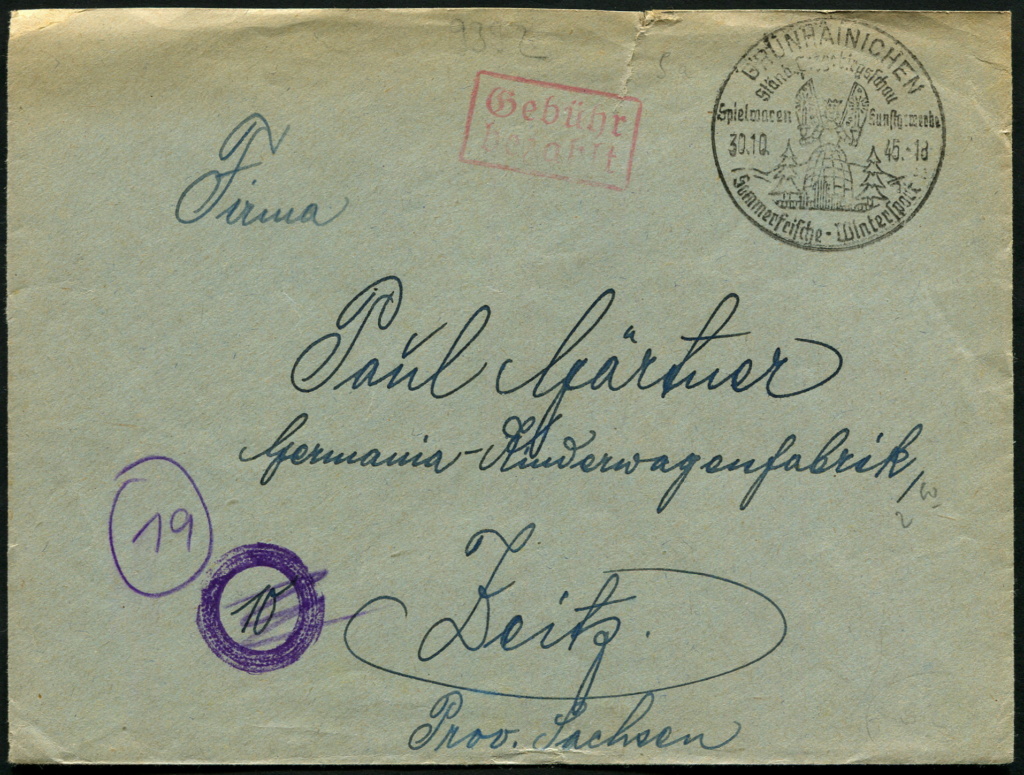 9392
GRÜNHAINICHEN
Ständ. Erzgebirgsschau
Spielwaren Kunstgewerbe
30.10. 45.-18
Sommerfrische - Wintersport
Gebühr
bezahlt
Firma
Paul Gärtner
Germania-Kinderwagenfabrik,
19
10
Zeitz.
Prov. Sachsen